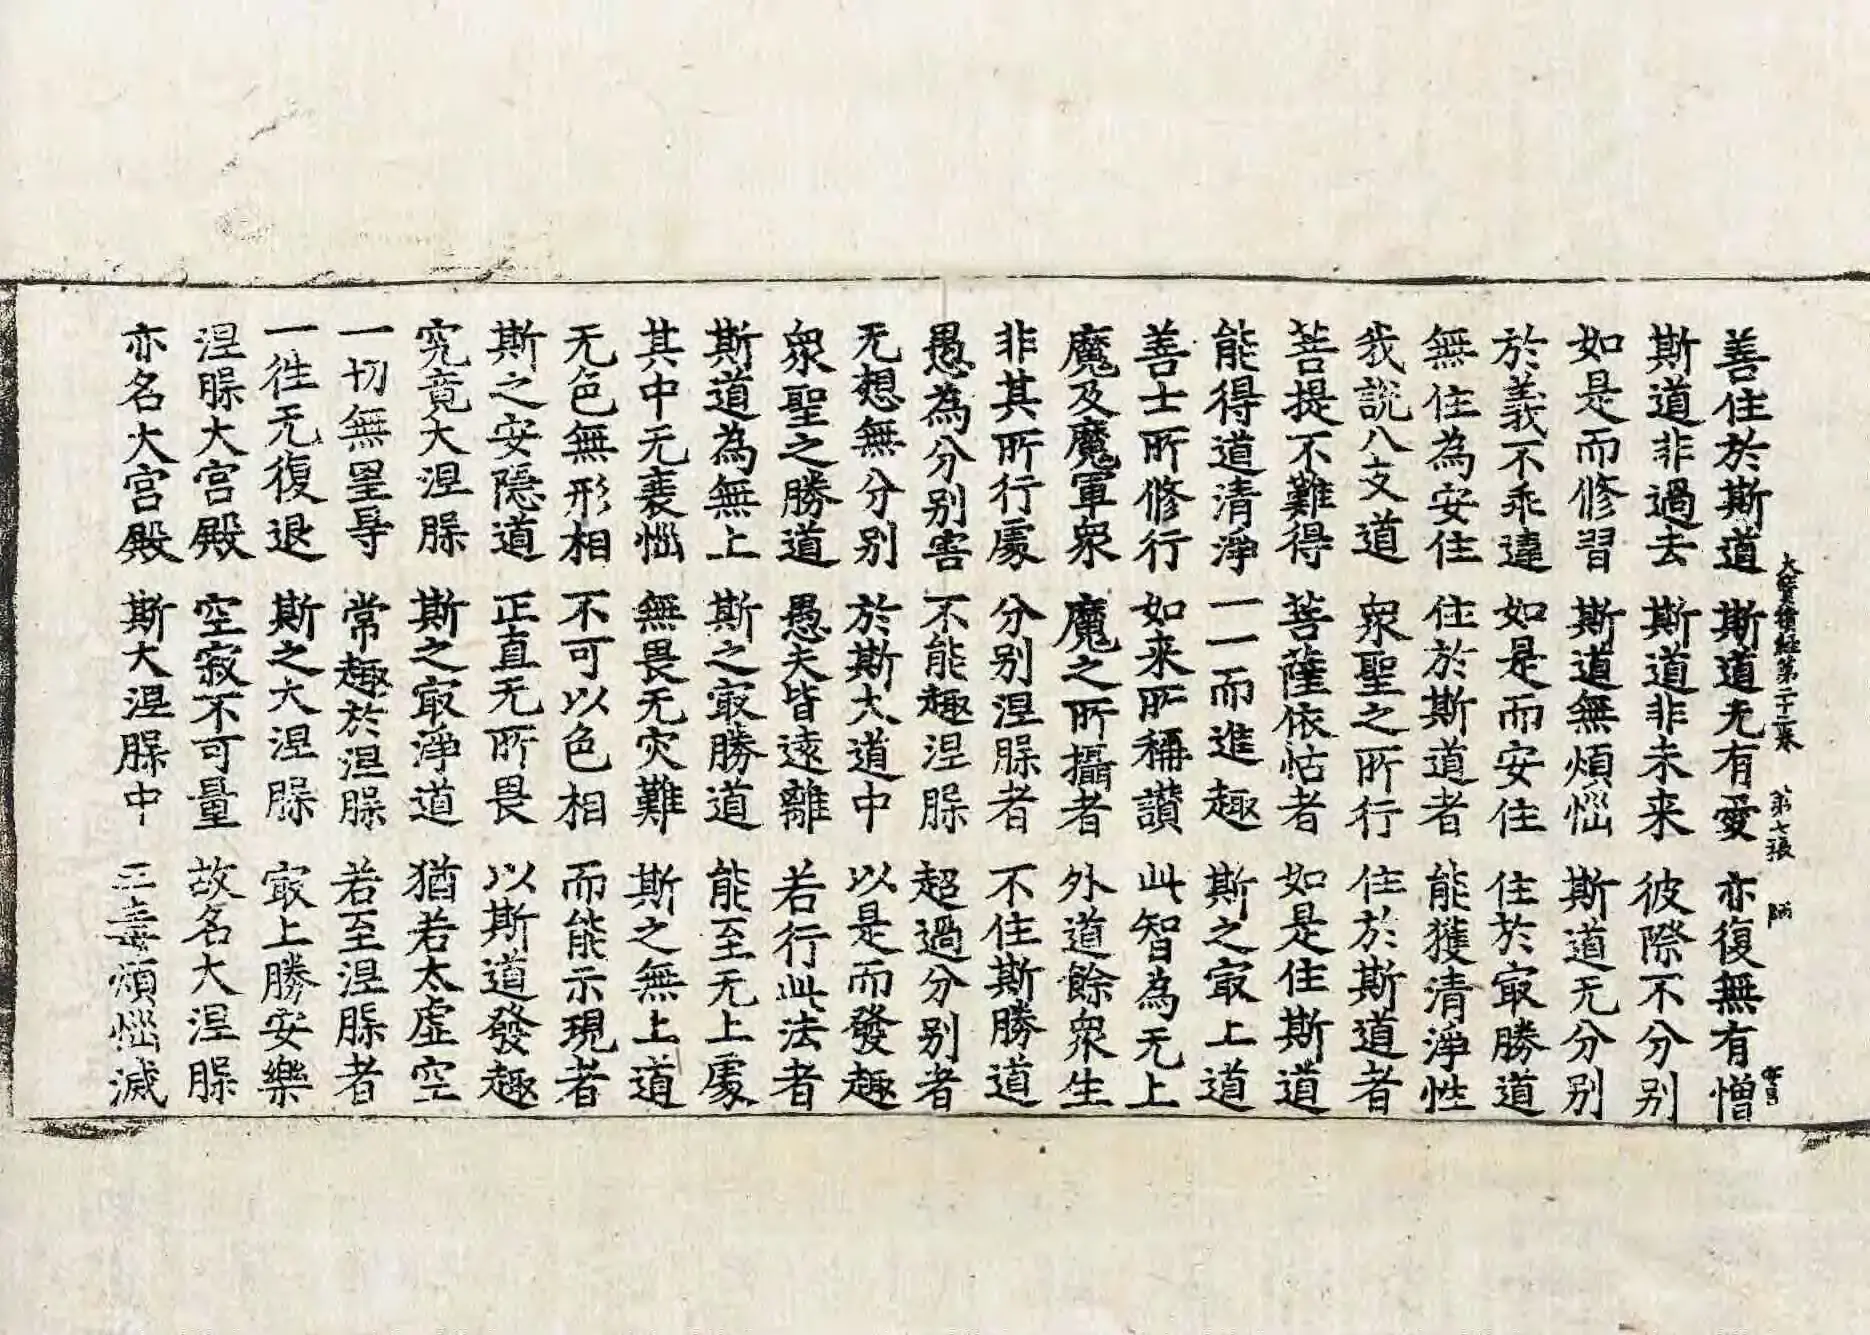 大寶積經第二十二卷　第七張　师
善住於斯道　斯道无有愛　亦復無有憎
斯道非過去　斯道非未来　彼際不分别
如是而俢習　斯道無煩惱　斯道无分别
於義不乖違　如是而安住　住於㝡勝道
無住為安住　住於斯道者　能獲清淨性
我說八支道　衆聖之所行　住於斯道者
菩提不難得　菩薩依怙者　如是住斯道
能得道清淨　一一而進趣　斯之㝡上道
善士所俢行　如来所稱讃　此智為无上
魔及魔軍衆　魔之所攝者　外道餘衆生
非其所行處　分别涅槃者　不住斯勝道
愚為分别害　不能趣涅槃　超過分别者
无想無分别　於斯大道中　以是而發趣
衆聖之勝道　愚夫皆逺離　若行此法者
斯道為無上　斯之㝡勝道　能至无上處
其中无衰惱　無畏无灾難　斯之無上道
无色無形相　不可以色相　而能示現者
斯之安隠道　正直无所畏　以斯道發趣
究竟大涅槃　斯之㝡淨道　猶若太虚空
一切無罣㝵　常趣於涅槃　若至涅槃者
一徃无復退　斯之大涅槃　㝡上勝安樂
涅槃大宫殿　空寂不可量　故名大涅槃
亦名大宫殿　斯大涅槃中　三毒煩惱滅